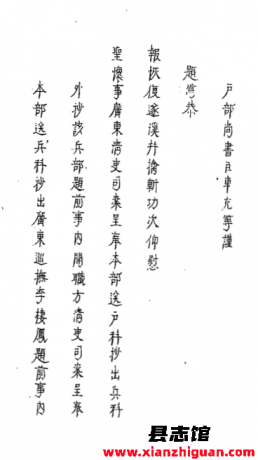 戶部尚書臣車克等謹
題為恭
報恢復遂溪并擒斬功次仰慰
聖懷事廣東清吏司案呈奉本部送戶科抄出兵科
外抄該兵部題前事內開職方清吏司案呈奉
本部送兵科抄出廣東巡撫李棲鳳題前事內
县志馆
www.xianzhiguan.com